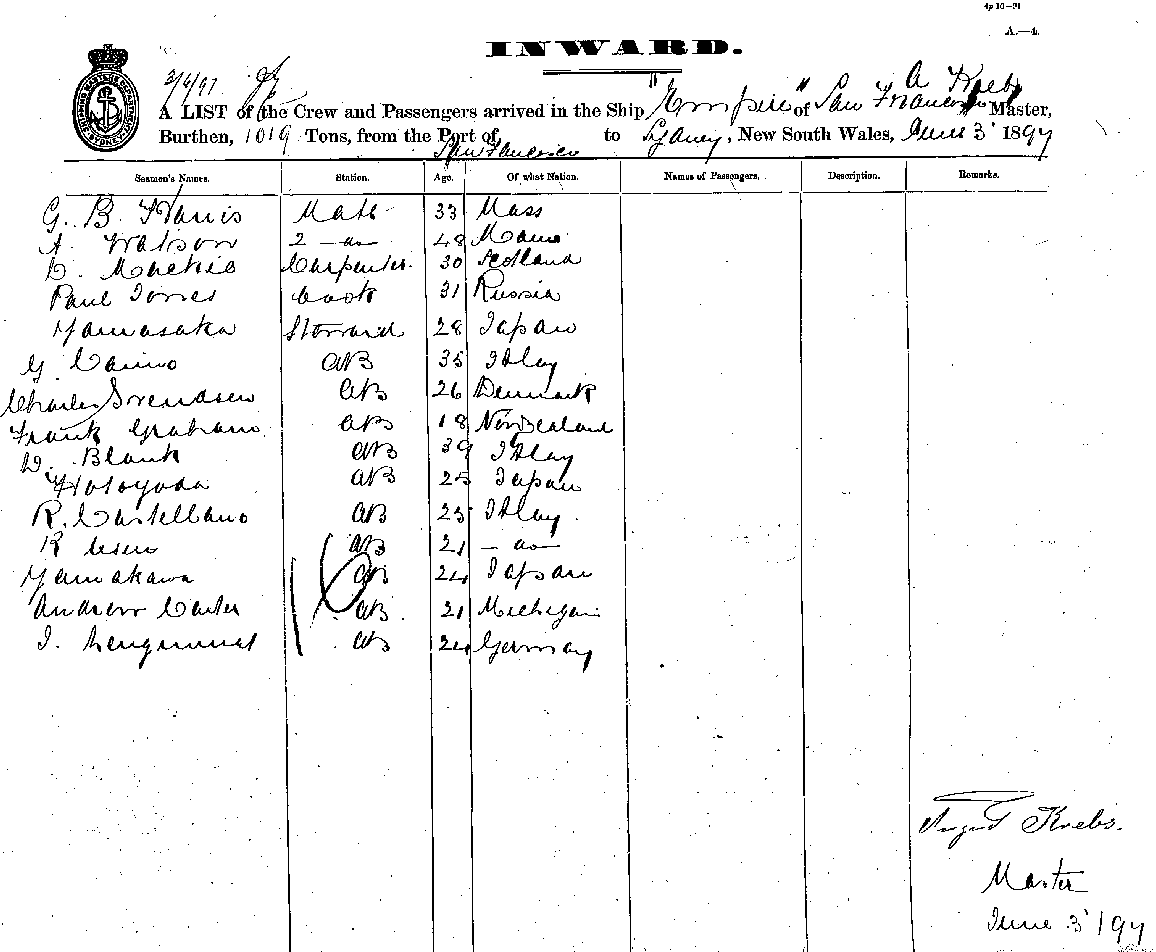 4p 10—91
A.—4.
INWARD.
3/6/97
A Krebs
A LIST of the Crew and Passengers arrived in the Ship "Empire" of San Francisco Master,
Burthen, 1019 Tons, from the Port of San Francisco to Sydney, New South Wales, June 3' 1897
Seamen's Names. Station. Age. Of what Nation. Names of Passengers. Description. Remarks.
G. B. Harris Mate 33 Mass
A. Watson 2 — do 48 Maine
D. Mackie Carpenter 30 Scotland
Paul Jones Cook 31 Russia
Yamasaka Steward 28 Japan
G. AB 35 Italy
Charles Svendsen AB 26 Denmark
Frank Graham AB 18 New Zealand
D. Blank AB 39 Italy
Hotoyoda AB 25 Japan
R. Castellano AB 25 Italy
R AB 21 — do —
Yamakawa AB 24 Japan
Andrew Carter AB 21 Michigan
AB 24 Germany
16
August Krebs.
Master
June 3' / 97